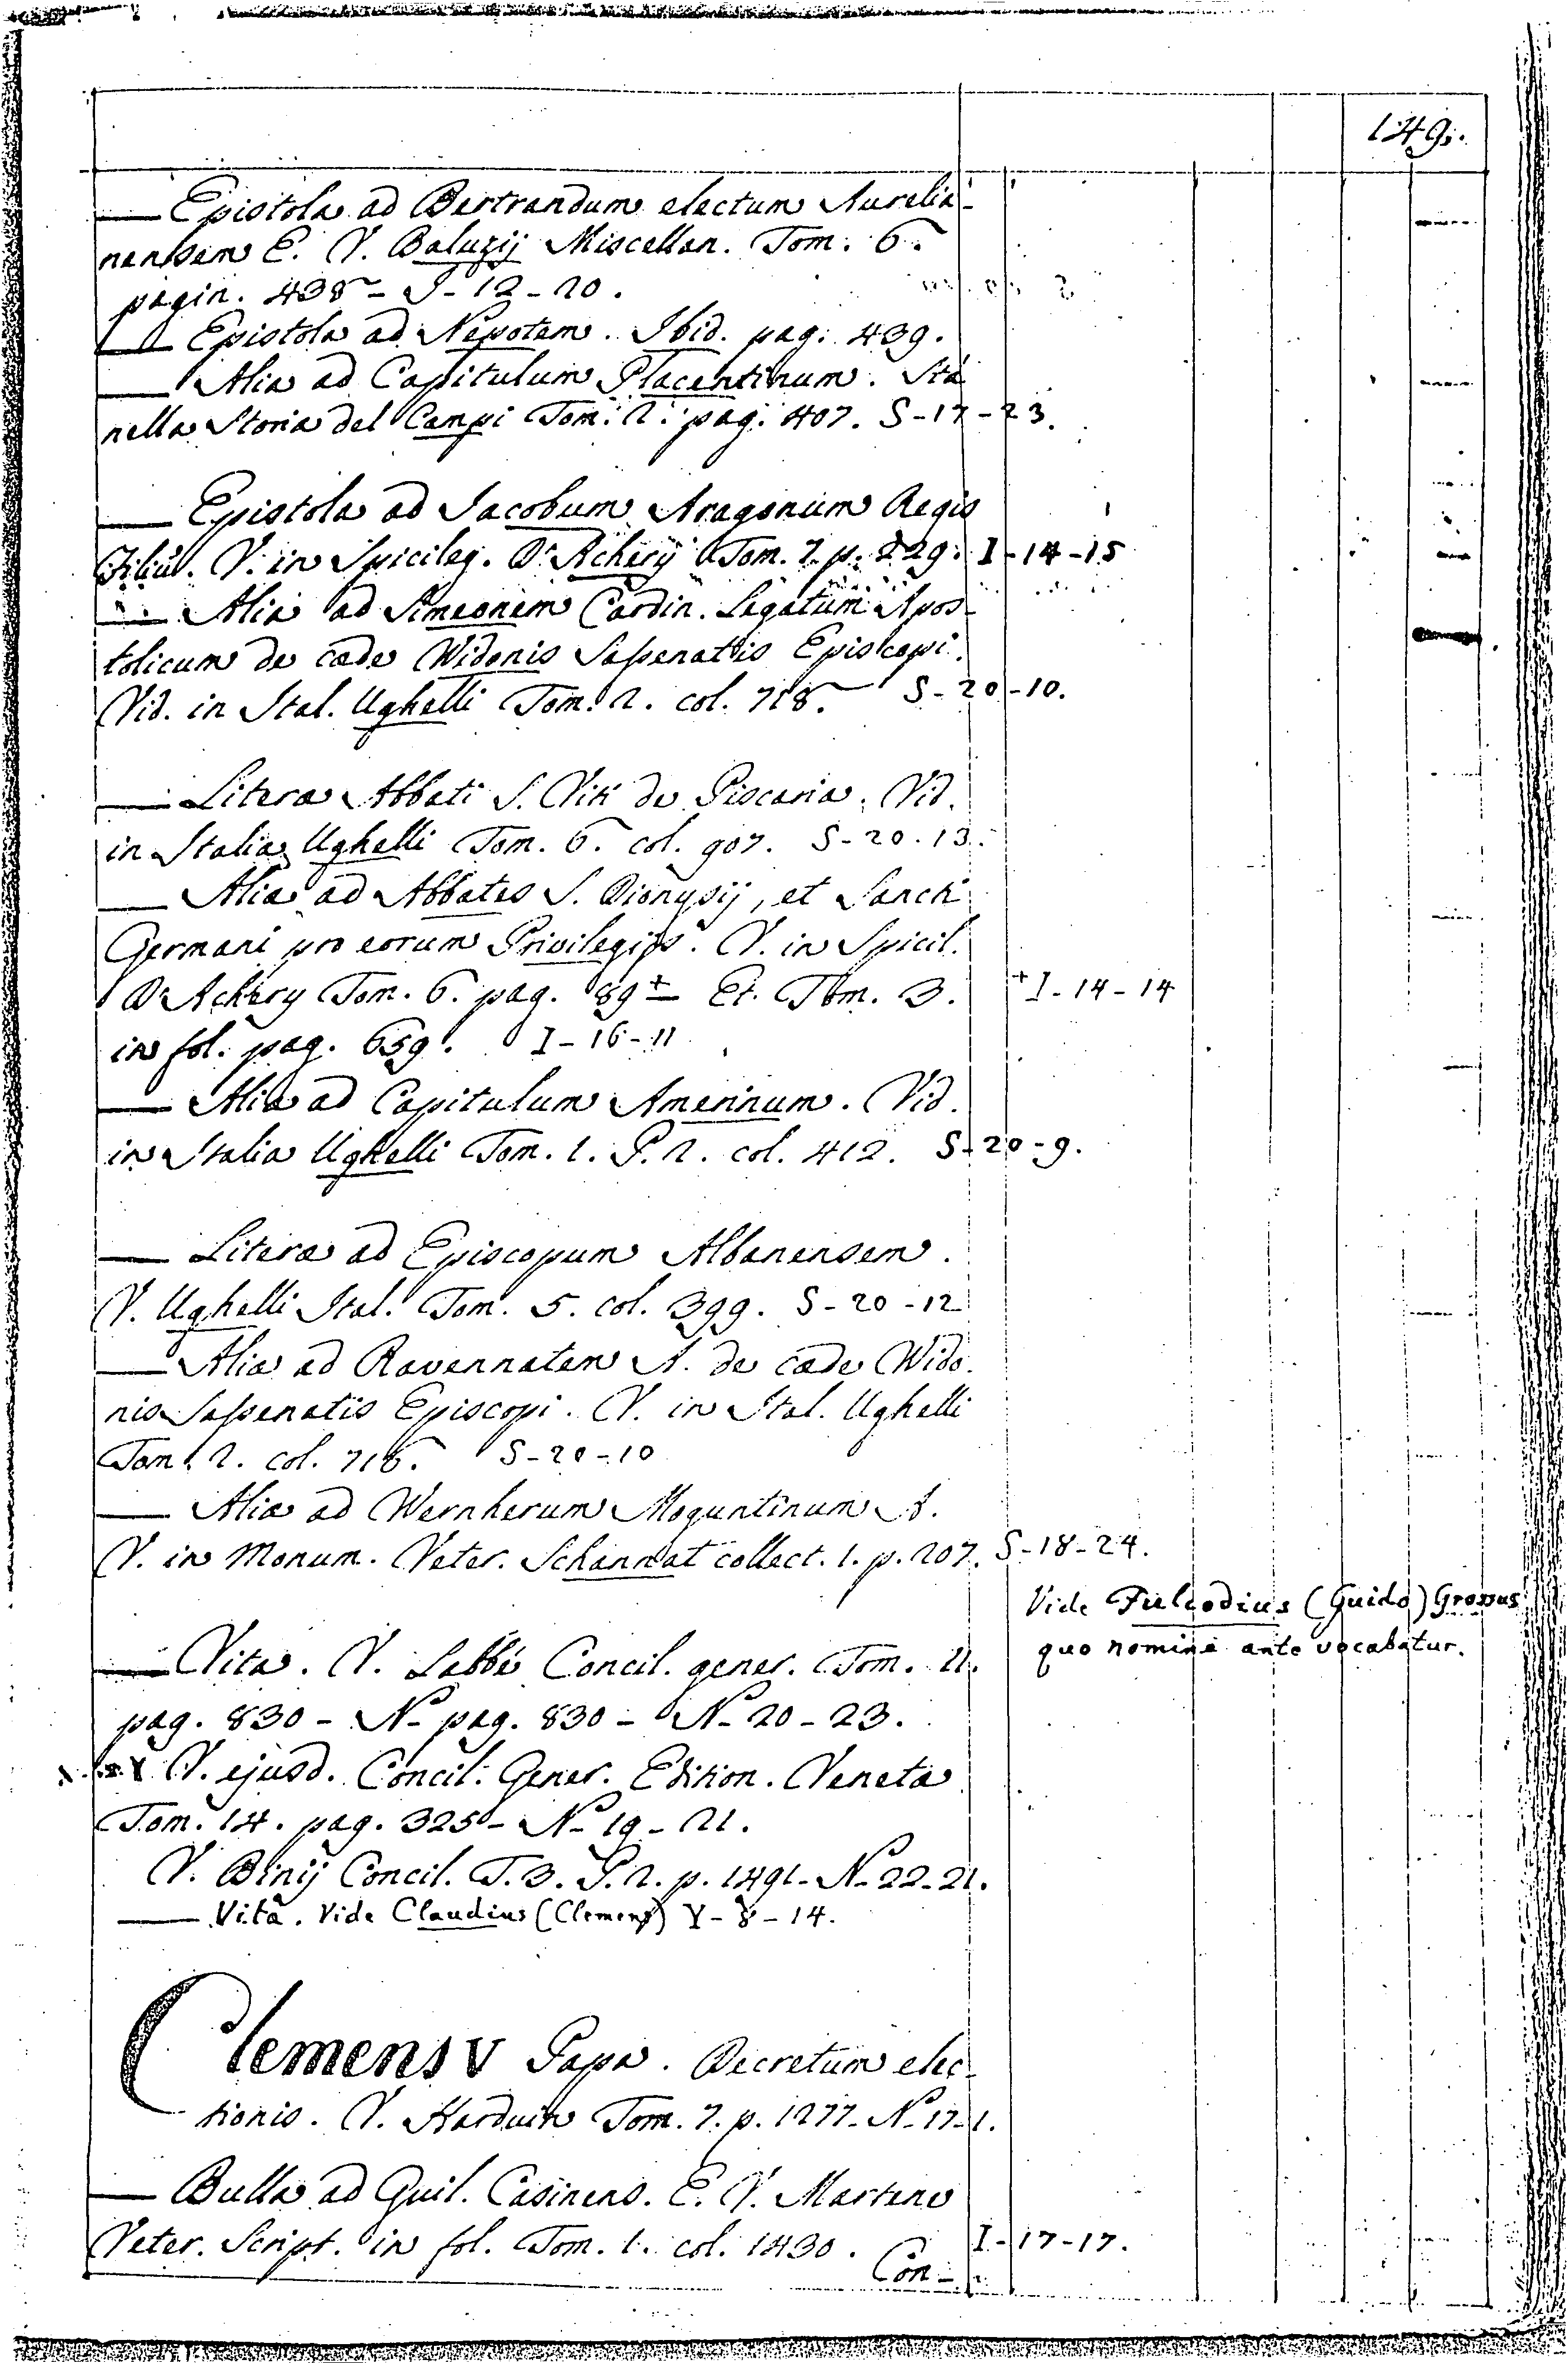 149.
— Epistola ad Bertrandum electum Aurelia-
nensem E. V. Baluzij Miscellan. Tom. 6.
pagin. 438 - J - 12 - 20.
— Epistola ad Nepotem. Ibid. pag. 439.
— Alia ad Capitulum Placentinum. Sta
nella Storia del Campi Tom. 2. pag. 407. S - 17 - 23.
— Epistola ad Jacobum Aragonum Regis
Filiū. V. in Spicileg. D'Achery Tom. 7. p. 229. I - 14 - 15
— Alia ad Simeonem Cardin. Legatum Apos-
tolicum de cæde Widonis Saſsenatis Episcopi.
Vid. in Ital. Ughelli Tom. 2. col. 718. S - 20 - 10.
— Literæ Abbati S. Viti de Piscaria. Vid.
in Italia Ughelli Tom. 6. col. 907. S - 20 - 13.
— Alia ad Abbates S. Dionysij, et Sancti
Germani pro eorum Privilegijs. V. in Spicil.
D'Achery Tom. 6. pag. 89 + Et. Tom. 3. + I - 14 - 14
in fol. pag. 659. I - 16 - 11
— Alia ad Capitulum Amerinum. Vid.
in Italia Ughelli Tom. 1. P. 2. col. 412. S - 20 - 9.
— Literæ ad Episcopum Albanensem.
V. Ughelli Ital. Tom. 5. col. 399. S - 20 - 12
— Alia ad Ravennatem A. de cæde Wido-
nis Saſsenatis Episcopi. V. in Ital. Ughelli
Tom. 2. col. 716. S - 20 - 10
— Alia ad Wernherum Moguntinum A.
V. in Monum. Veter. Schannat collect. 1. p. 207. S - 18 - 24.
Vide Fulcodius (Guido) Grossus
quo nomine ante vocabatur.
— Vita. V. Labbè Concil. gener. Tom. 11.
pag. 830 - N - pag. 830 - N - 20 - 23.
V. ejusd. Concil. Gener. Edition. Veneta
Tom. 14. pag. 325 - N - 19 - 21.
V. Binij Concil. T. 3. P. 2. p. 1491 - N - 22 - 21.
— Vita. Vide Claudius (Clemens) Y - 8 - 14.
Clemens V Papa. Decretum elec-
tionis. V. Harduin Tom. 7. p. 1277 - N - 17 - 1.
— Bulla ad Guil. Casinens. E. V. Martene
Veter. Script. in fol. Tom. 1. col. 1430. I - 17 - 17.
Con -